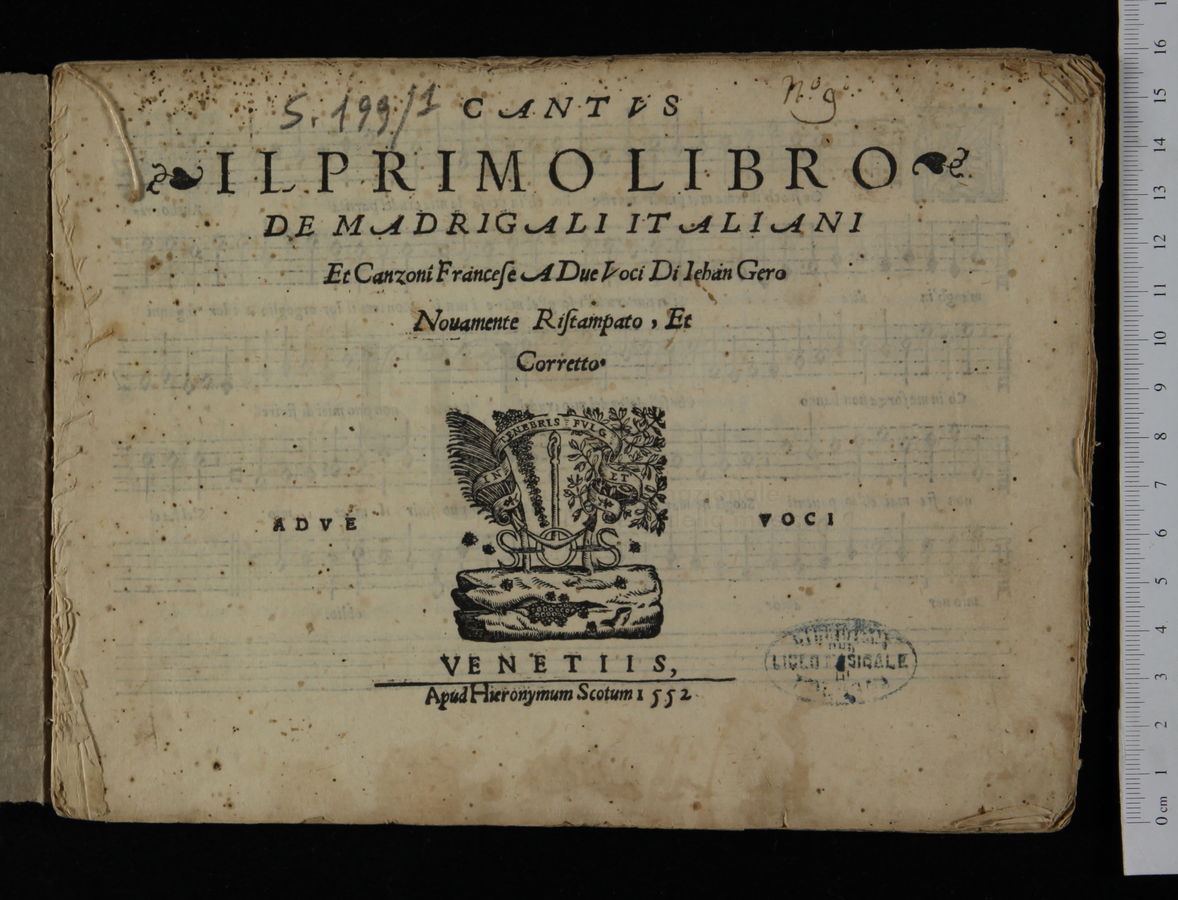 S. 199/1
Nº 9º
CANTVS
IL PRIMO LIBRO
DE MADRIGALI ITALIANI
Et Canzoni Francese A Due Voci Di Iehan Gero
Nouamente Riſtampato, Et
Corretto.
IN TENEBRIS FVLG
ET
A DVE VOCI
S O S
VENETIIS,
Apud Hieronymum Scotum 1552
LICEO MUSICALE
0 cm 1 2 3 4 5 6 7 8 9 10 11 12 13 14 15 16